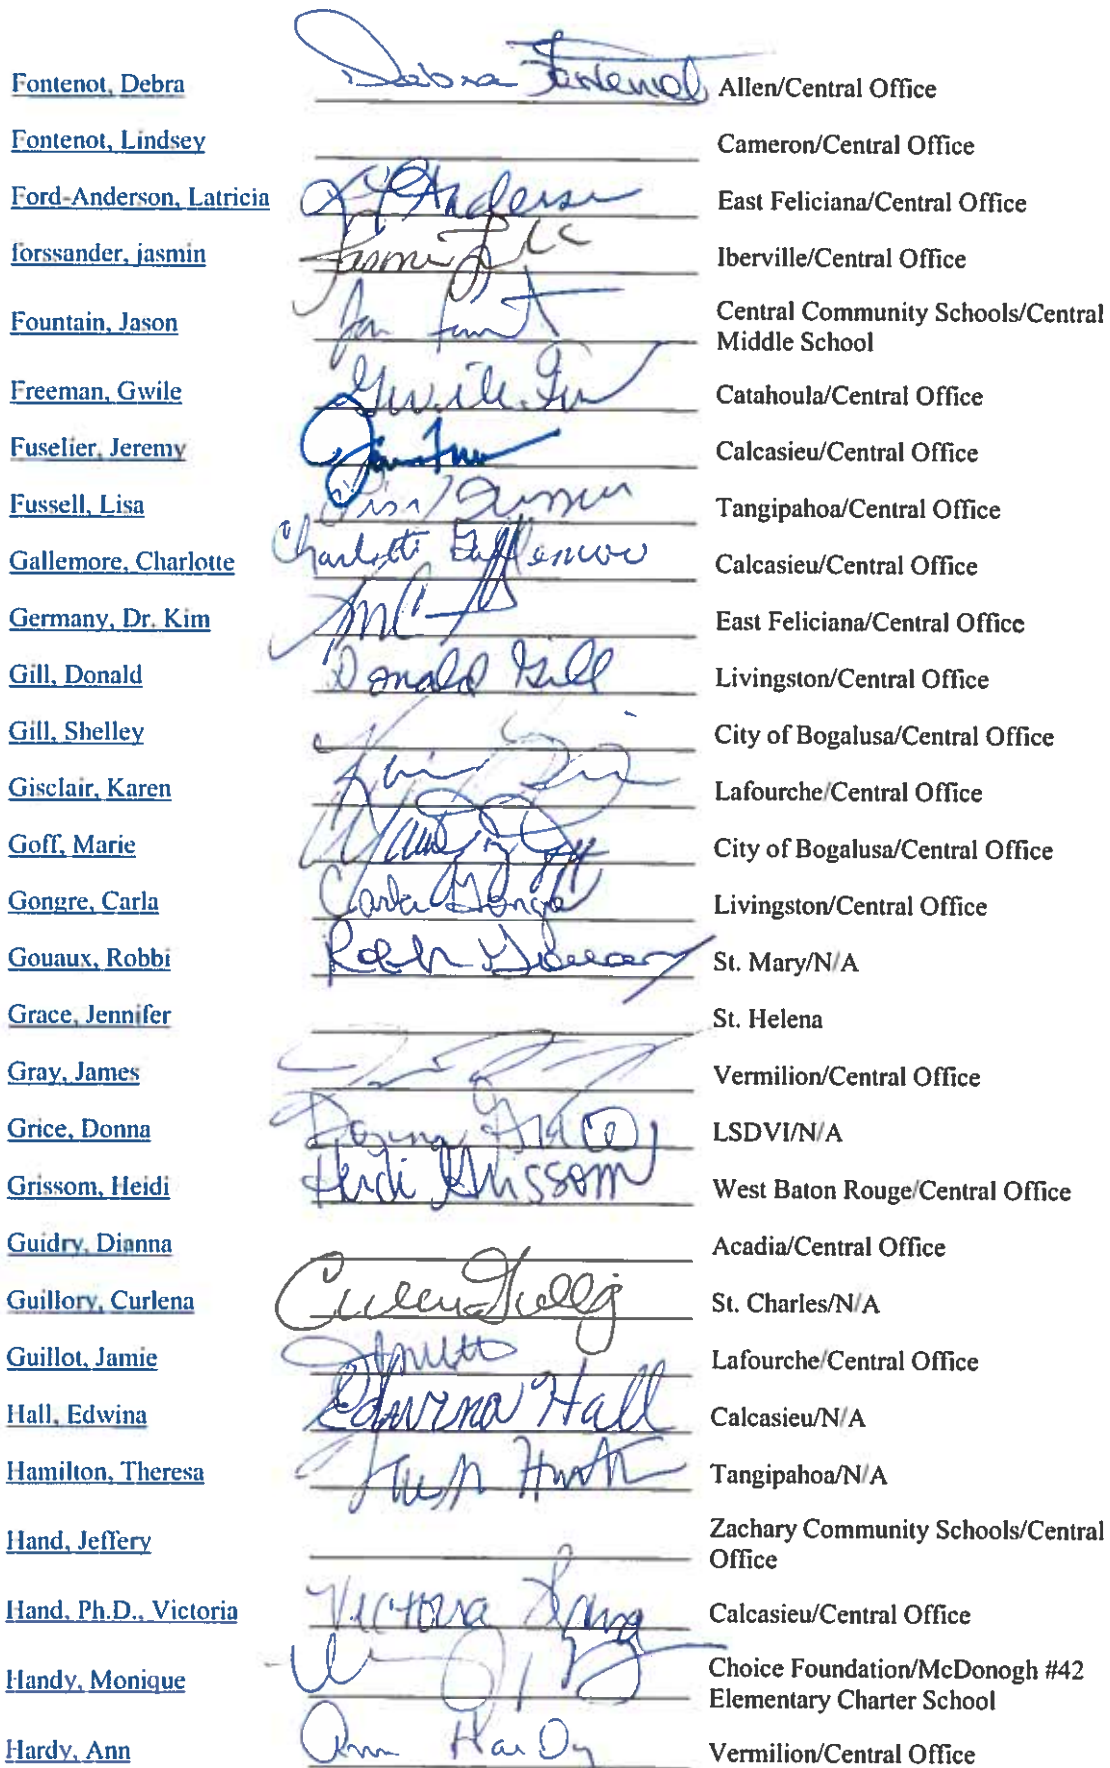 Fontenot, Debra Debra Fontenot Allen/Central Office
Fontenot, Lindsey Cameron/Central Office
Ford-Anderson, Latricia Anderson East Feliciana/Central Office
forssander, jasmin Iberville/Central Office
Fountain, Jason Central Community Schools/Central
Middle School
Freeman, Gwile Gwile Catahoula/Central Office
Fuselier, Jeremy Calcasieu/Central Office
Fussell, Lisa Lisa Tangipahoa/Central Office
Gallemore, Charlotte Charlotte Gallemore Calcasieu/Central Office
Germany, Dr. Kim East Feliciana/Central Office
Gill, Donald Donald Gill Livingston/Central Office
Gill, Shelley City of Bogalusa/Central Office
Gisclair, Karen Lafourche/Central Office
Goff, Marie City of Bogalusa/Central Office
Gongre, Carla Carla Gongre Livingston/Central Office
Gouaux, Robbi St. Mary/N/A
Grace, Jennifer St. Helena
Gray, James Vermilion/Central Office
Grice, Donna Donna Grice LSDVI/N/A
Grissom, Heidi Heidi Grissom West Baton Rouge/Central Office
Guidry, Dianna Acadia/Central Office
Guillory, Curlena St. Charles/N/A
Guillot, Jamie Lafourche/Central Office
Hall, Edwina Edwina Hall Calcasieu/N/A
Hamilton, Theresa Tangipahoa/N/A
Hand, Jeffery Zachary Community Schools/Central
Office
Hand, Ph.D., Victoria Victoria Hand Calcasieu/Central Office
Handy, Monique Choice Foundation/McDonogh #42
Elementary Charter School
Hardy, Ann Ann Hardy Vermilion/Central Office